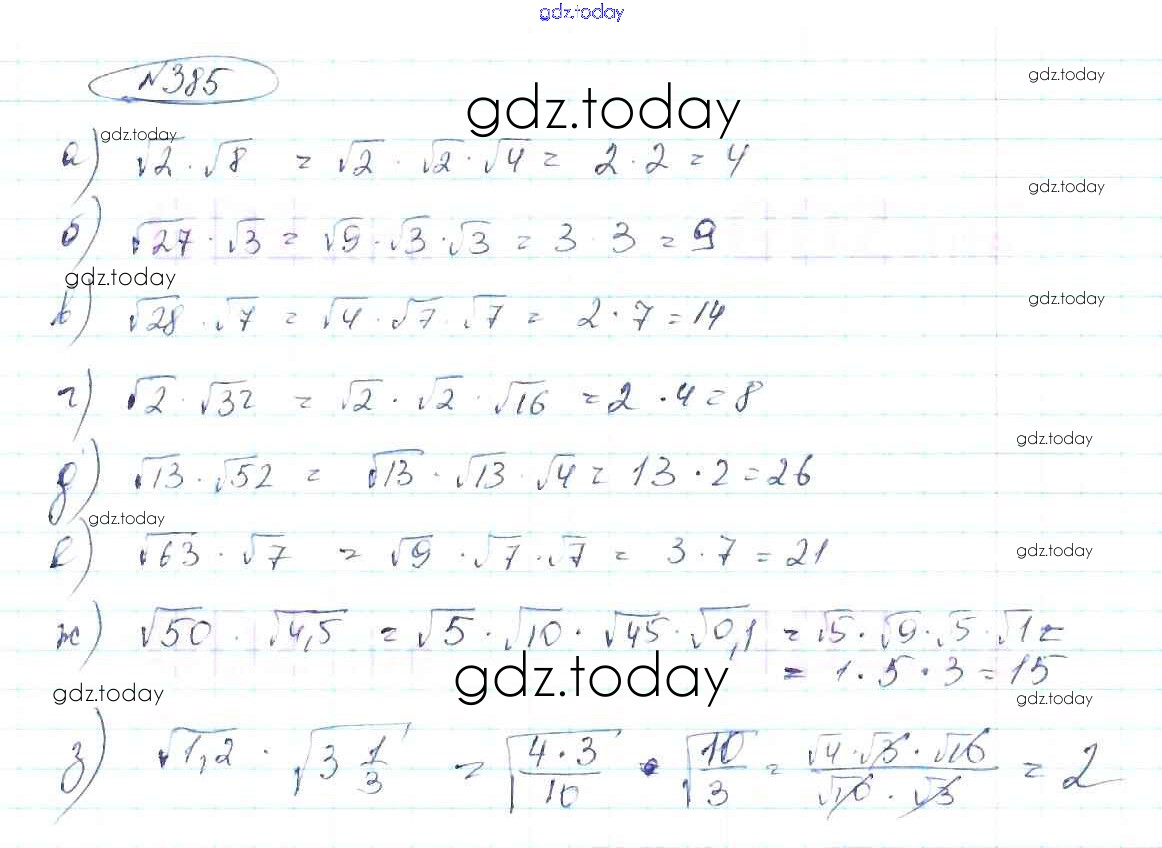 gdz.today
№385
gdz.today
gdz.today
gdz.today
а) √2 · √8 = √2 · √2 · √4 = 2 · 2 = 4
gdz.today
б) √27 · √3 = √9 · √3 · √3 = 3 · 3 = 9
gdz.today
gdz.today
в) √28 · √7 = √4 · √7 · √7 = 2 · 7 = 14
г) √2 · √32 = √2 · √2 · √16 = 2 · 4 = 8
gdz.today
д) √13 · √52 = √13 · √13 · √4 = 13 · 2 = 26
gdz.today
е) √63 · √7 = √9 · √7 · √7 = 3 · 7 = 21
gdz.today
ж) √50 · √4,5 = √5 · √10 · √45 · √0,1 = √5 · √9 · √5 · √1 =
= 1 · 5 · 3 = 15
gdz.today
gdz.today
gdz.today
з) √1,2 · √(3 1/3) = √(4·3/10) · √(10/3) = (√4 · √3 · √10)/(√10 · √3) = 2